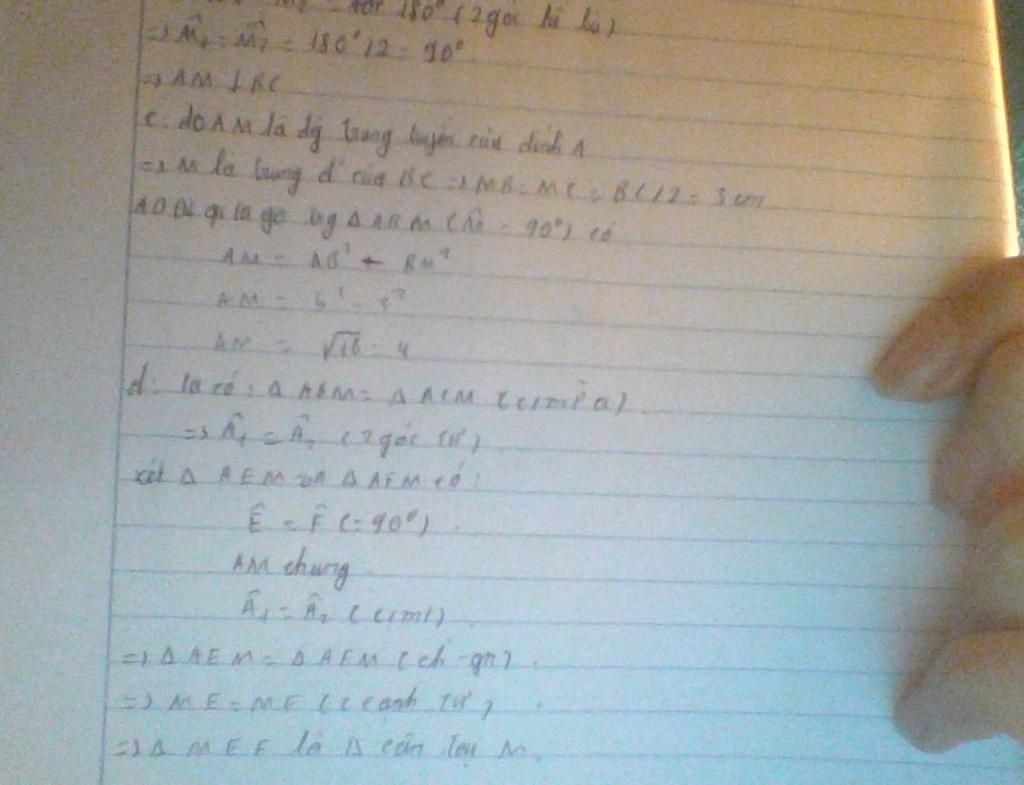 180° (2 góc kề bù)
=> M̂₁ = M̂₂ = 180°/2 = 90°
=> AM ⊥ BC
c. do AM là đg trung tuyến của đỉnh A
=> M là trung đ' của BC => MB = MC = BC/2 = 3 cm
ADĐL pi ta go vg Δ ABM (M̂ = 90°) có
AM = AB² - BM²
AM = 5² - 3²
AM = √16 = 4
d. ta có: Δ ABM = Δ ACM (cmt a)
=> Â₁ = Â₂ (2 góc tư)
xét Δ AEM và Δ AFM có:
Ê = F̂ (= 90°)
AM chung
Â₁ = Â₂ (cmt)
=> Δ AEM = Δ AFM (ch - gn)
=> ME = MF (2 cạnh tư)
=> Δ MEF là Δ cân tại M.